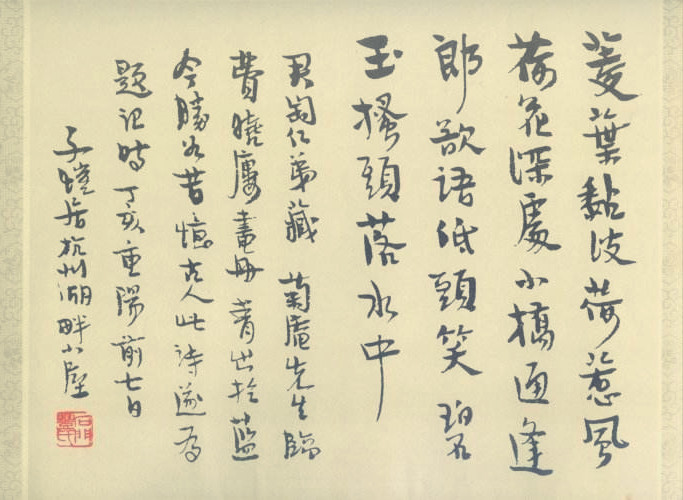 菱葉黏波荷惹風
荷花深處小橋通逢
郎欲語低頭笑碧
玉搔頭落水中
君匋仁弟藏 菊庵先生臨
費曉廔畫冊 菁出於藍
今勝於昔憶古人此詩遂為
題記時丁亥重陽前七日
子愷居杭州湖畔小屋
石門豐氏